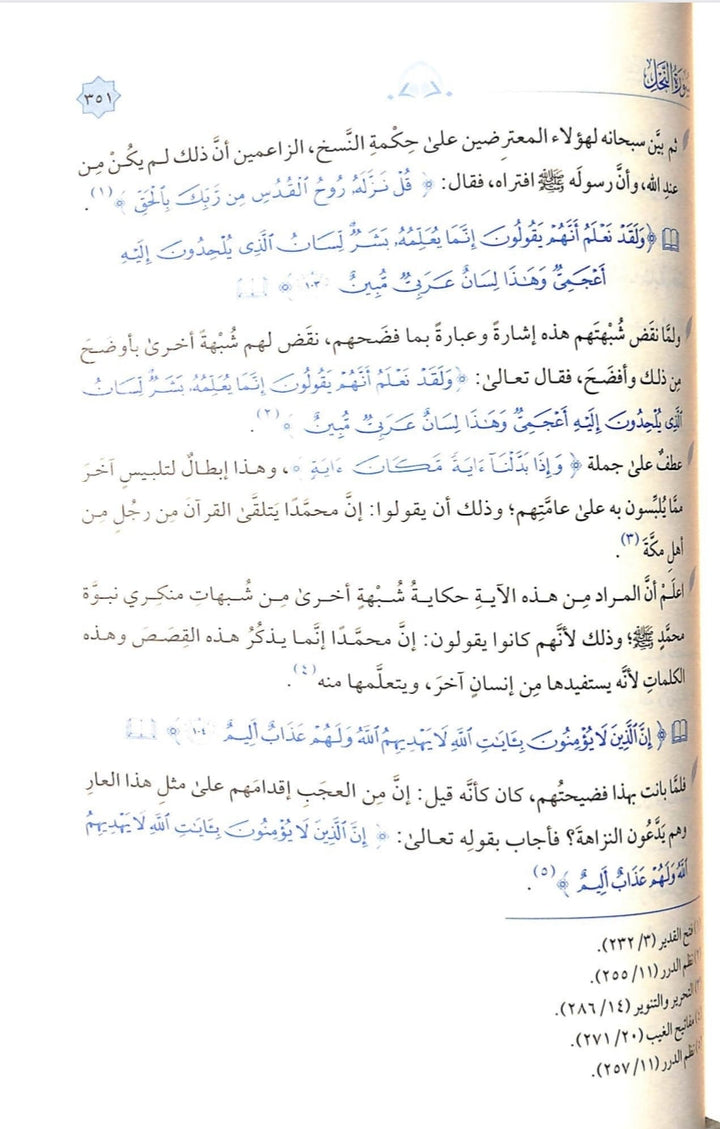 سورة النحل
٣٥١
ثم بيَّن سبحانه لهؤلاء المعترضين علىٰ حِكْمةِ النَّسخ، الزاعمين أنَّ ذلك لم يكُنْ مِن
عندِ الله، وأنَّ رسولَه ﷺ افتراه، فقال: ﴿ قُلْ نَزَّلَهُۥ رُوحُ ٱلْقُدُسِ مِن رَّبِّكَ بِٱلْحَقِّ ﴾(١).
﴿ وَلَقَدْ نَعْلَمُ أَنَّهُمْ يَقُولُونَ إِنَّمَا يُعَلِّمُهُۥ بَشَرٌ ۗ لِّسَانُ ٱلَّذِى يُلْحِدُونَ إِلَيْهِ
أَعْجَمِىٌّ وَهَٰذَا لِسَانٌ عَرَبِىٌّ مُّبِينٌ ١٠٣ ﴾
ولمَّا نقَض شُبْهتَهم هذه إشارةً وعبارةً بما فضَحهم، نقَض لهم شُبْهةً أخرىٰ بأوضحَ
مِن ذلك وأفضَحَ، فقال تعالىٰ: ﴿ وَلَقَدْ نَعْلَمُ أَنَّهُمْ يَقُولُونَ إِنَّمَا يُعَلِّمُهُۥ بَشَرٌ ۗ لِّسَانُ
ٱلَّذِى يُلْحِدُونَ إِلَيْهِ أَعْجَمِىٌّ وَهَٰذَا لِسَانٌ عَرَبِىٌّ مُّبِينٌ ﴾(٢).
عطفٌ علىٰ جملة ﴿ وَإِذَا بَدَّلْنَآ ءَايَةً مَّكَانَ ءَايَةٍ ﴾، وهذا إبطالٌ لتلبيسٍ آخَرَ
ممَّا يُلبِّسون به علىٰ عامَّتِهم؛ وذلك أن يقولوا: إنَّ محمَّدًا يَتلقَّىٰ القرآنَ مِن رجُلٍ مِن
أهلِ مكَّةَ(٣).
اعلَمْ أنَّ المراد مِن هذه الآيةِ حكايةُ شُبْهةٍ أخرىٰ مِن شُبهاتِ منكري نبوَّة
محمَّدٍ ﷺ؛ وذلك لأنَّهم كانوا يقولون: إنَّ محمَّدًا إنَّما يذكُرُ هذه القِصَصَ وهذه
الكلماتِ لأنَّه يستفيدها مِن إنسانٍ آخرَ، ويتعلَّمها منه(٤).
﴿ إِنَّ ٱلَّذِينَ لَا يُؤْمِنُونَ بِـَٔايَٰتِ ٱللَّهِ لَا يَهْدِيهِمُ ٱللَّهُ وَلَهُمْ عَذَابٌ أَلِيمٌ ١٠٤ ﴾
فلمَّا بانت بهذا فضيحتُهم، كان كأنَّه قيل: إنَّ مِن العجَبِ إقدامَهم علىٰ مثلِ هذا العارِ
وهم يَدَّعُون النزاهةَ؟ فأجاب بقولِه تعالىٰ: ﴿ إِنَّ ٱلَّذِينَ لَا يُؤْمِنُونَ بِـَٔايَٰتِ ٱللَّهِ لَا يَهْدِيهِمُ
ٱللَّهُ وَلَهُمْ عَذَابٌ أَلِيمٌ ﴾(٥).
(١) فتح القدير (٣/ ٢٣٢).
(٢) نظم الدرر (١١/ ٢٥٥).
(٣) التحرير والتنوير (١٤/ ٢٨٦).
(٤) مفاتيح الغيب (٢٠/ ٢٧١).
(٥) نظم الدرر (١١/ ٢٥٧).